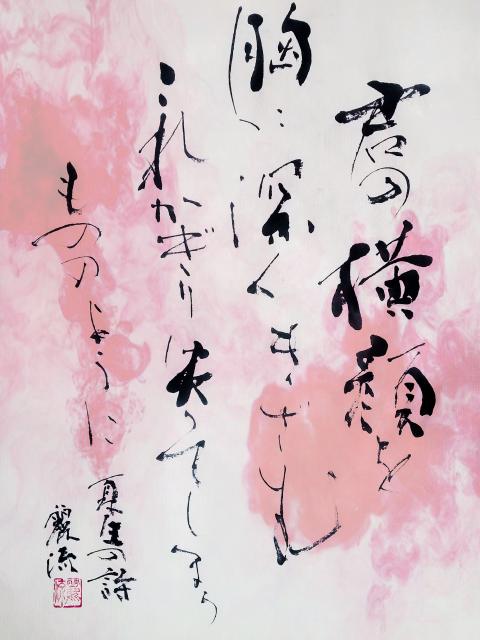 君の横顔を
胸に深くきざむ
これかぎり失ってしまう
もののように
夏生の詩
麗流